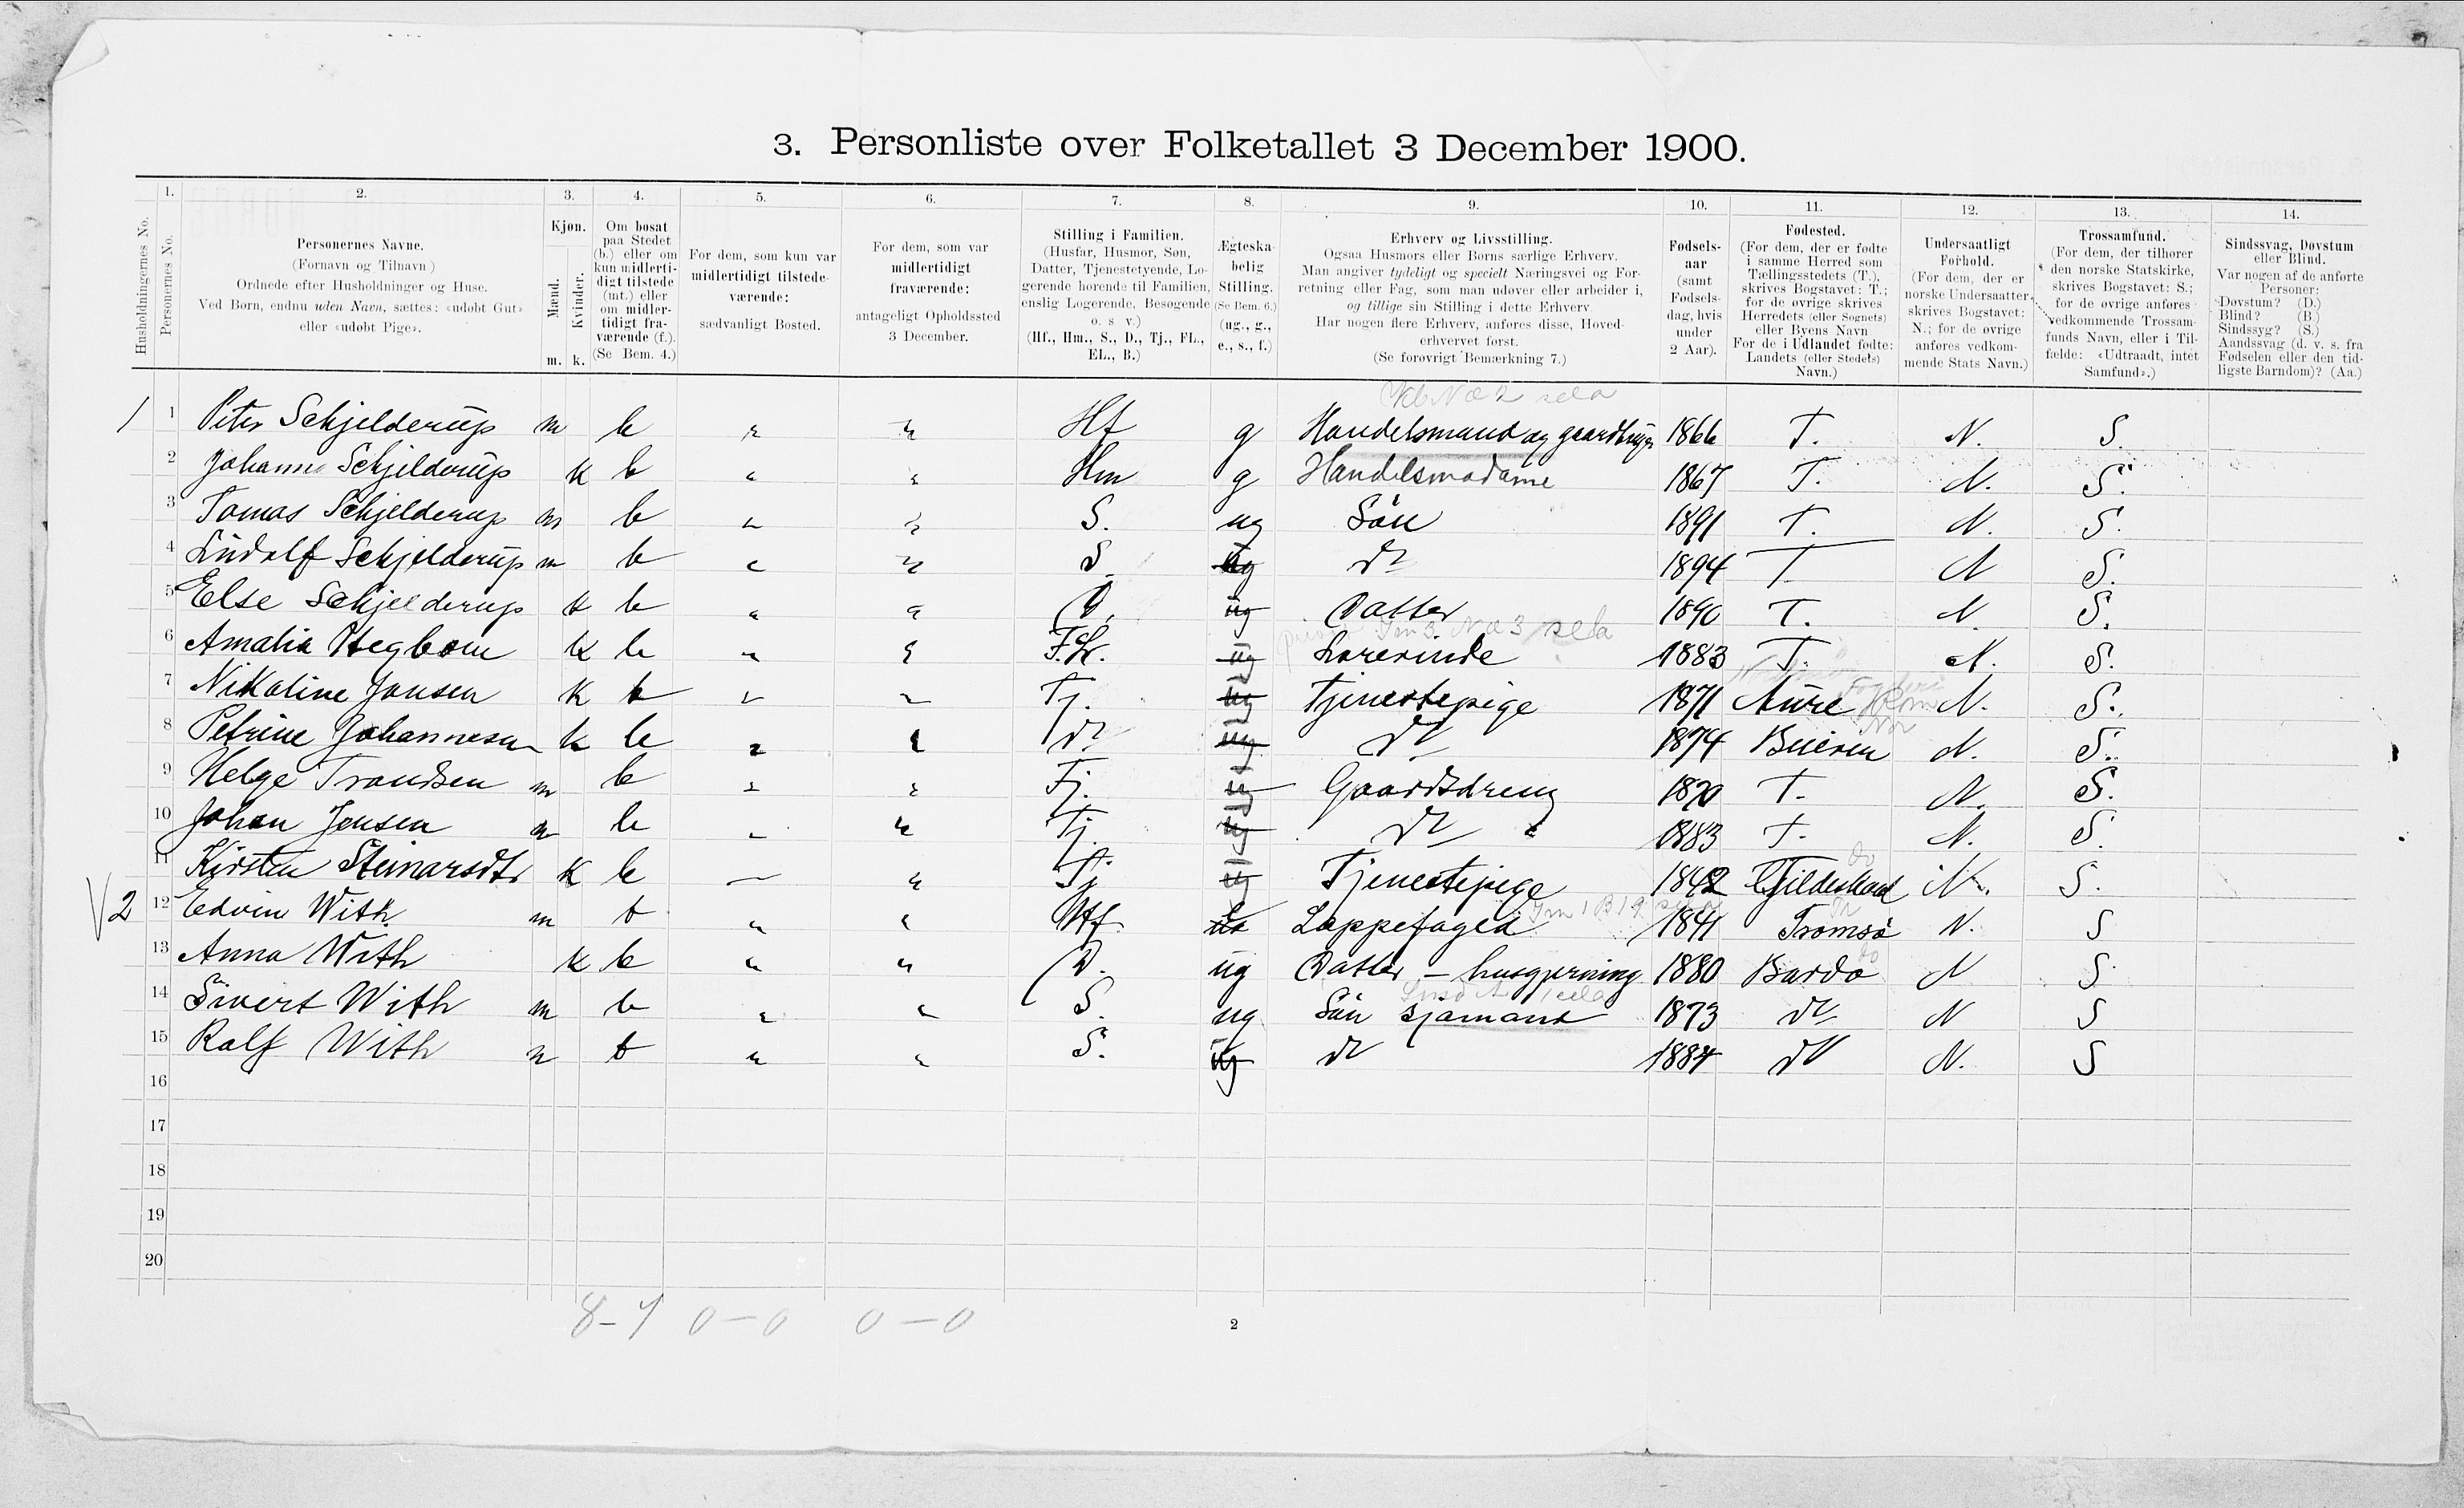 3. Personliste over Folketallet 3 December 1900.
1. 2. 3. 4. 5. 6. 7. 8. 9. 10. 11. 12. 13. 14.
Husholdningernes No.
Personernes No.
Personernes Navne.
(Fornavn og Tilnavn)
Ordnede efter Husholdninger og Huse.
Ved Børn, endnu uden Navn, sættes: «udøbt Gut»
eller «udøbt Pige».
Kjøn.
Mænd.
Kvinder.
m. k.
Om bosat
paa Stedet
(b.) eller om
kun midlerti-
digt tilstede
(mt.) eller
om midler-
tidigt fra-
værende (f.).
(Se Bem. 4.)
For dem, som kun var
midlertidigt tilstede-
værende:
sædvanligt Bosted.
For dem, som var
midlertidigt
fraværende:
antageligt Opholdssted
3 December.
Stilling i Familien.
(Husfar, Husmor, Søn,
Datter, Tjenestetyende, Lo-
gerende hørende til Familien,
enslig Logerende, Besøgende
o. s. v.)
(Hf., Hm., S., D., Tj., FL.,
EL., B.)
Ægteska-
belig
Stilling.
(Se Bem. 6.)
(ug., g.,
e., s., f.)
Erhverv og Livsstilling.
Ogsaa Husmors eller Børns særlige Erhverv.
Man angiver tydeligt og specielt Næringsvei og For-
retning eller Fag, som man udøver eller arbeider i,
og tillige sin Stilling i dette Erhverv.
Har nogen flere Erhverv, anføres disse, Hoved-
erhvervet først.
(Se forøvrigt Bemærkning 7.)
Fødsels-
aar
(samt
Fødsels-
dag, hvis
under
2 Aar).
Fødested.
(For dem, der er fødte
i samme Herred som
Tællingsstedets (T.),
skrives Bogstavet: T.;
for de øvrige skrives
Herredets (eller Sognets)
eller Byens Navn
For de i Udlandet fødte:
Landets (eller Stedets)
Navn.)
Undersaatligt
Forhold.
(For dem, der er
norske Undersaatter,
skrives Bogstavet:
N.; for de øvrige
anføres vedkom-
mende Stats Navn.)
Trossamfund.
(For dem, der tilhører
den norske Statskirke,
skrives Bogstavet: S.;
for de øvrige anføres
vedkommende Trossam-
funds Navn, eller i Til-
fælde: «Udtraadt, intet
Samfund».)
Sindssvag, Døvstum
eller Blind.
Var nogen af de anførte
Personer:
Døvstum? (D.)
Blind? (B.)
Sindssyg? (S.)
Aandssvag (d. v. s. fra
Fødselen eller den tid-
ligste Barndom)? (Aa.)
1 1 Peter Schjelderup m b " " Hf g Handelsmand og gaardbruger 1866 T. N. S.
2 Johanne Schjelderup k b " " Hm g Handelsmadame 1867 T. N. S.
3 Tomas Schjelderup m b " " S. ug Sön 1891 T. N. S.
4 Ludolf Schjelderup m b " " S. ug do 1894 T N S.
5 Else Schjelderup k b " " D. ug Datter 1890 T. N. S.
6 Amalia Hegbom k b " " F.L. ug Lærerinde 1883 T. N. S.
7 Nikoline Jansen k b " " Tj. ug Tjenestepige 1871 Aure N. S.
8 Petrine Johannesen k b " " do ug do 1874 N. S.
9 Helge Trondsen m b " " Tj. ug Gaardsdreng 1870 T. N. S.
10 Johan Jensen m b " " Tj. ug do 1883 T. N. S.
11 Kirsten Steinarsdtr k b " " Tj. ug Tjenestepige 1842 Gildeskaal N. S.
2 12 Edvin With m b " " Hf. Lappefoged 1841 Tromsö N. S
13 Anna With k b " " D. ug Datter - husgjerning 1880 Bardo N S
14 Sivert With m b " " S. ug Sön Sjømand 1873 do N S
15 Rolf With m b " " S. ug do 1884 do N. S
16
17
18
19
20
8-7 0-0 0-0
2